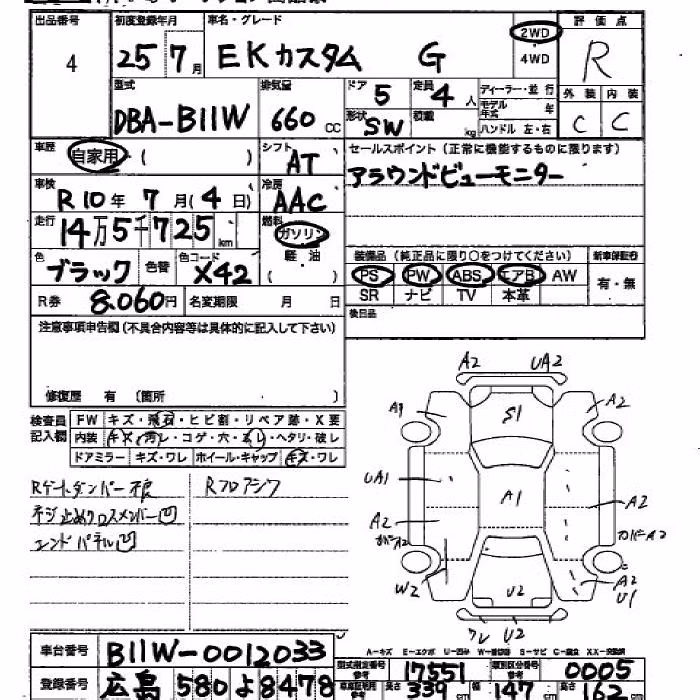 出品番号 初度登録年月 車名・グレード 評価点
4 25年7月 EKカスタム G 2WD 4WD R
型式 排気量 ドア 定員 ディーラー・並行 外装 内装
DBA-B11W 660cc 5 4人 モデル年式 年 C C
形状 SW 積載 kg ハンドル 左・右
車歴 自家用・( ) シフト AT セールスポイント(正常に機能するものに限ります)
車検 R10年 7月(4日) 冷房 AAC アラウンドビューモニター
走行 14万5千725km 燃料 ガソリン 軽油 ( )
色 ブラック 色替 色コード X42
装備品(純正品に限り○をつけてください) 新車保証書
PS PW ABS エアB AW 有・無
SR ナビ TV 本革
R券 8,060円 名変期限 月 日 後日品
注意事項申告欄(不具合内容等は具体的に記入して下さい)
修復歴 有 (箇所 )
検査員記入欄 FW キズ・飛石・ヒビ割・リペア跡・X要
内装 キズ・汚レ・コゲ・穴・ルレ・ヘタリ・破レ
ドアミラー キズ・ワレ ホイール・キャップ キズ・ワレ
Rゲートダンパー不良 Rフロアシワ
ネジ止めクロスメンバー凹
エンドパネル凹
A2 UA2
A1 S1 A2
UA1 A1 A2
A2 カバーA2 カバーA2
W2 U2 A2 U1
ワレ U2
A-キズ E-エクボ U-凹み W-補修跡 S-サビ C-腐食 XX-交換済
車台番号 B11W-0012033 型式指定番号 17551 類別区分番号 0005
登録番号 広島 580 よ8478 長さ 339cm 幅 147cm 高さ 162cm